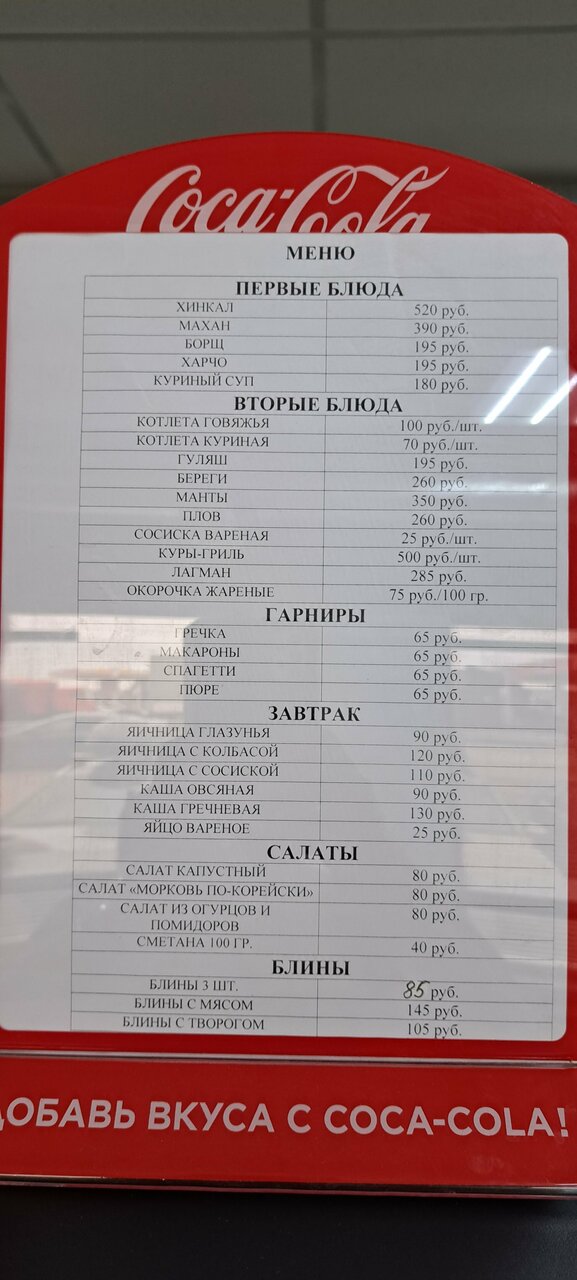 Coca-Cola
МЕНЮ
ПЕРВЫЕ БЛЮДА
ХИНКАЛ 520 руб.
МАХАН 390 руб.
БОРЩ 195 руб.
ХАРЧО 195 руб.
КУРИНЫЙ СУП 180 руб.
ВТОРЫЕ БЛЮДА
КОТЛЕТА ГОВЯЖЬЯ 100 руб./шт.
КОТЛЕТА КУРИНАЯ 70 руб./шт.
ГУЛЯШ 195 руб.
БЕРЕГИ 260 руб.
МАНТЫ 350 руб.
ПЛОВ 260 руб.
СОСИСКА ВАРЕНАЯ 25 руб./шт.
КУРЫ-ГРИЛЬ 500 руб./шт.
ЛАГМАН 285 руб.
ОКОРОЧКА ЖАРЕНЫЕ 75 руб./100 гр.
ГАРНИРЫ
ГРЕЧКА 65 руб.
МАКАРОНЫ 65 руб.
СПАГЕТТИ 65 руб.
ПЮРЕ 65 руб.
ЗАВТРАК
ЯИЧНИЦА ГЛАЗУНЬЯ 90 руб.
ЯИЧНИЦА С КОЛБАСОЙ 120 руб.
ЯИЧНИЦА С СОСИСКОЙ 110 руб.
КАША ОВСЯНАЯ 90 руб.
КАША ГРЕЧНЕВАЯ 130 руб.
ЯЙЦО ВАРЕНОЕ 25 руб.
САЛАТЫ
САЛАТ КАПУСТНЫЙ 80 руб.
САЛАТ «МОРКОВЬ ПО-КОРЕЙСКИ» 80 руб.
САЛАТ ИЗ ОГУРЦОВ И 80 руб.
ПОМИДОРОВ
СМЕТАНА 100 ГР. 40 руб.
БЛИНЫ
БЛИНЫ 3 ШТ. 85 руб.
БЛИНЫ С МЯСОМ 145 руб.
БЛИНЫ С ТВОРОГОМ 105 руб.
ДОБАВЬ ВКУСА С COCA-COLA!